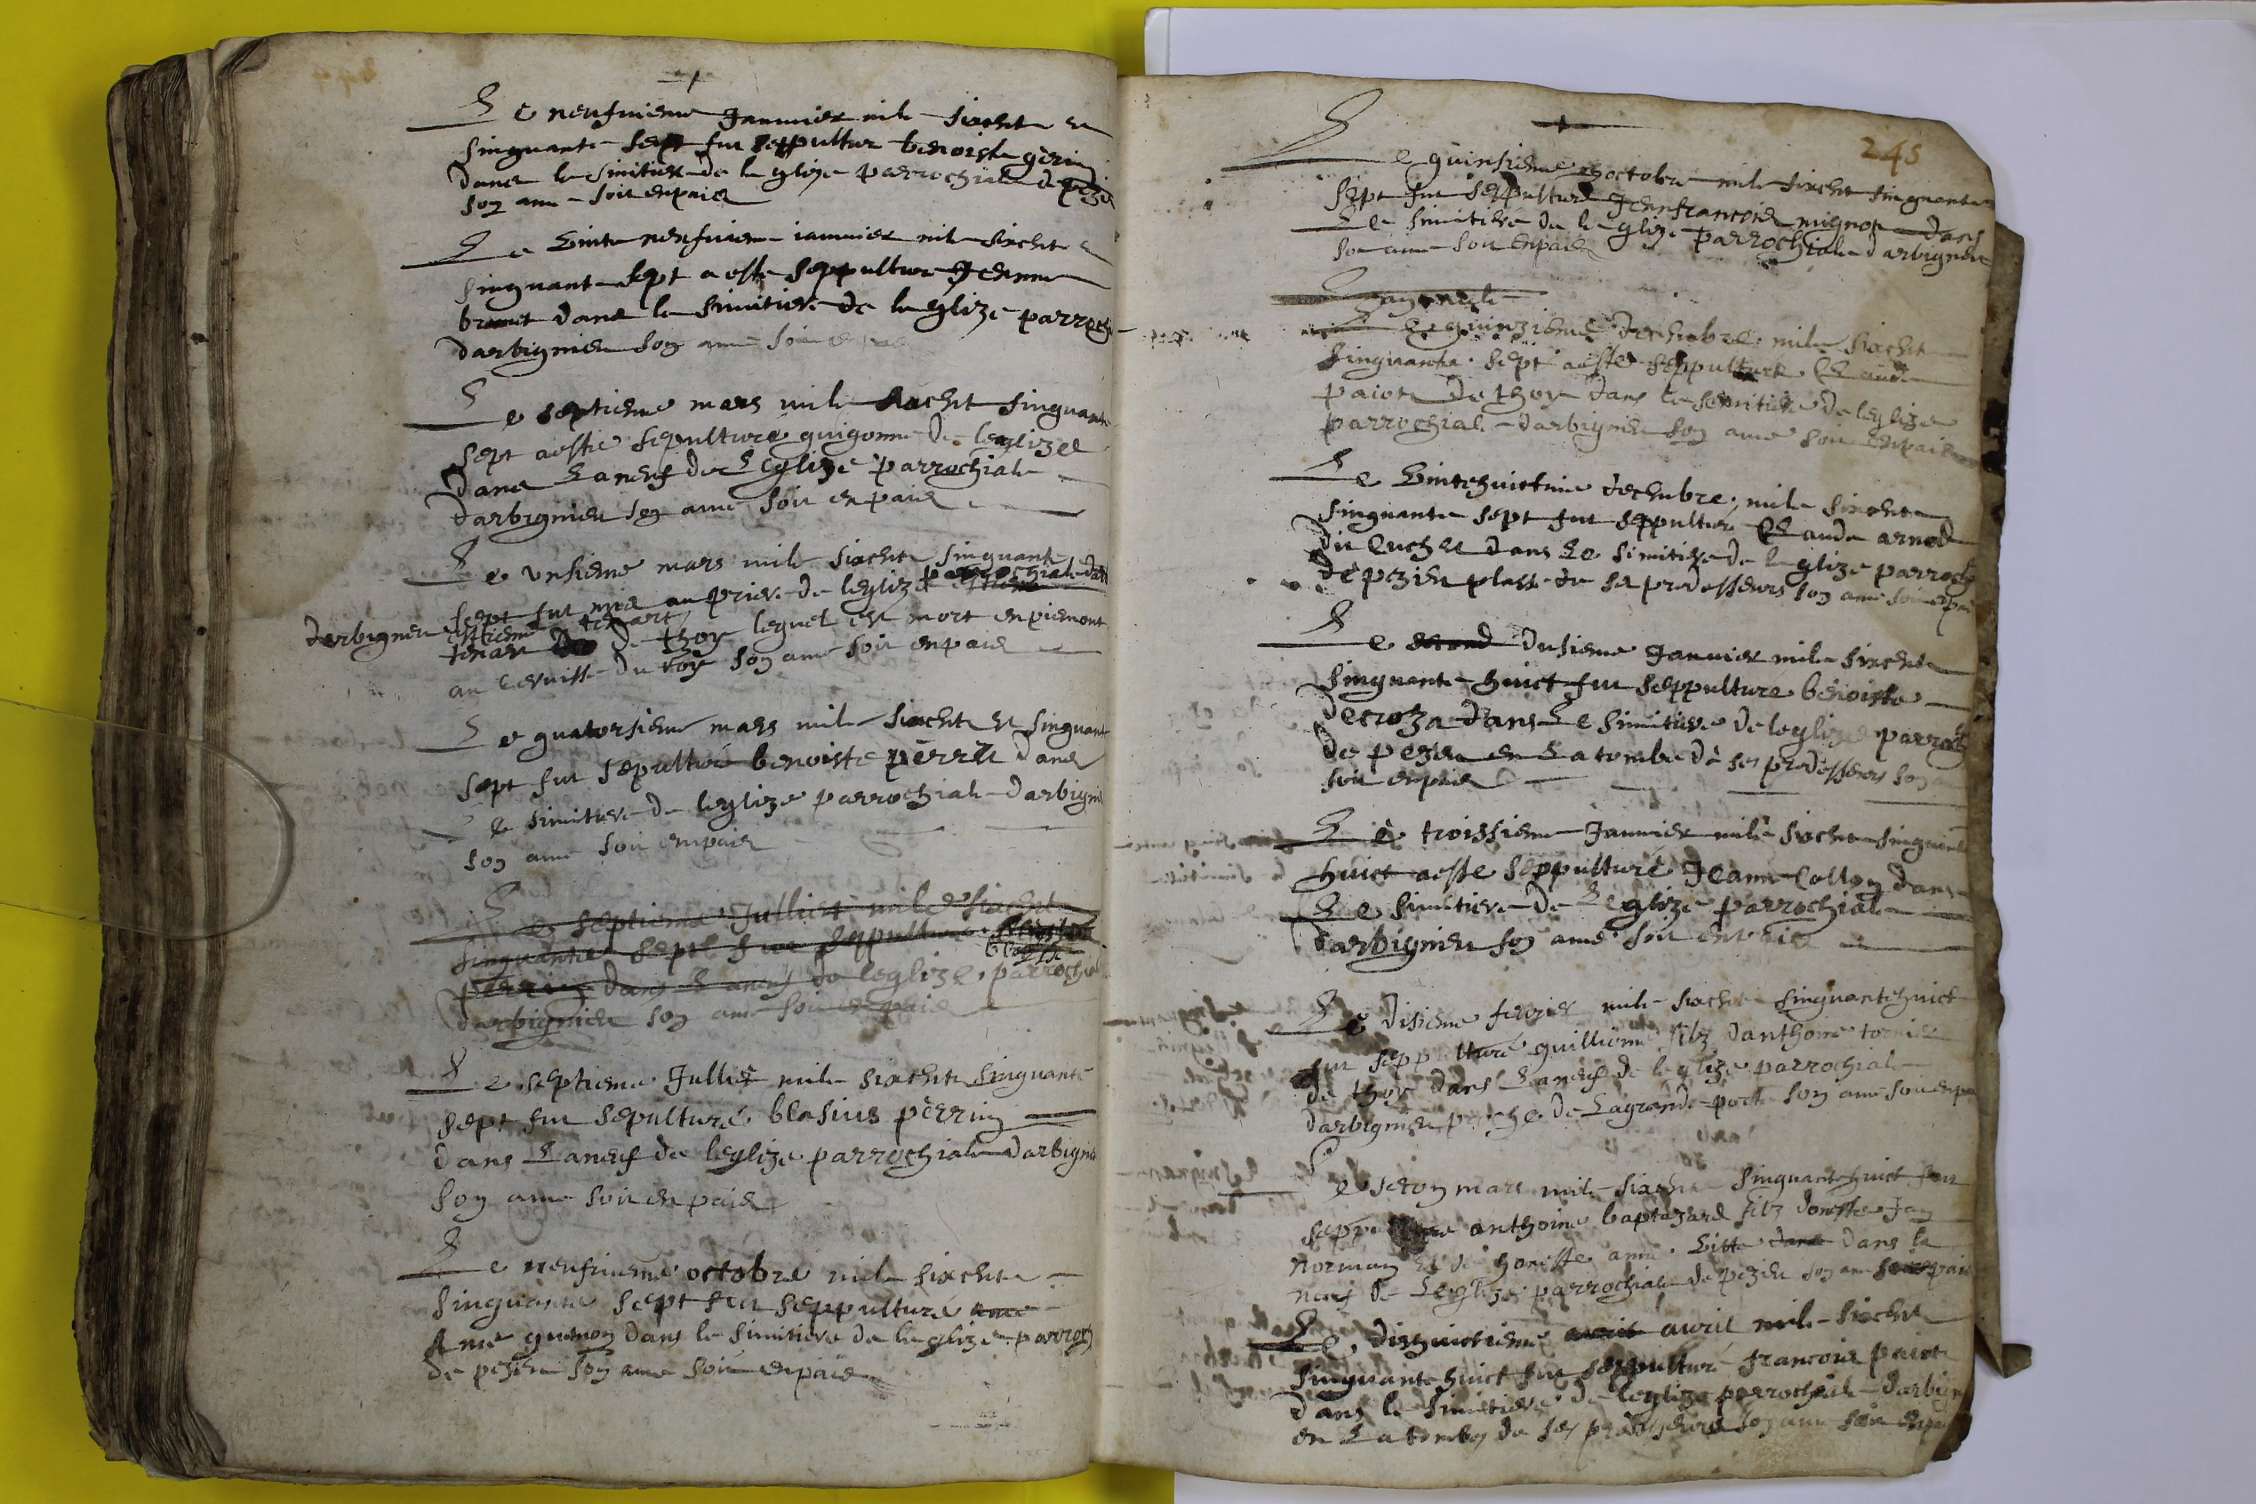 Le neufuieme Januuier mile sixcht et
singuante sept fut seppulturé benoiste gerin
dans le simitiere de leglize parrochiale de pezieu
son ame soit enpaix
Le Vinte neufuieme ianuuier mil sixcht et
singuante sept a esté seppulturé Jeanne
brunet dans le simitiere de leglize parrochi
darbignieu son ame soit enpaix
Le septieme mars mile sixcht singuante
sept aesté sepulturé guigonne de leglize
dans Laneuf de Leglize parrochiale
darbignieu son ame soit enpaix
Le vnsieme mars mile sixcht singuante
sept fut mis au priere de leglize parrochiale
darbignieu estienne tenart
tenart de thoy lequel est mort enpiemont
au seruisse du roy son ame soit enpaix
Le quatorsieme mars mile sixcht et singuante
sept fut sepulturé benoiste perret dans
Le simitiere de leglize parrochiale darbignieu
son ame soit enpaix
Le septieme Julliet mile sixcht
singuante sept fut sepulturé
blasius
perrin dans Laneuf de leglize parrochial
darbignieu son ame soit enpaix
Le septieme Julliet mile sixcht singuante
sept fut sepulturé blasius perrin
dans Laneuf de leglize parrochiale darbignie
son ame soit enpaix
Le neufuieme octobre mile sixcht
singuante sept fut seppulturé ame
Ame guenon dans le simitiere de leglize parroch
de pezieu son ame soit enpaix
245
Le quinsieme octobre mile sixcht singuante
sept fut seppulturé Jeanfrancois mignot dans
Le simitiere de leglize parrochiale darbignieu
son ame soit enpaix
Le quinzieme decembre mile sixcht
singuante sept aesté seppulturé Claude
paiot de thoy dans le semitiere de leglize
parrochiale darbignieu son ame soit enpaix
Le Vintehuictime decembre mile sixcht
singuante sept fut seppulturé Claude arnod
dit cuchet dans Le simitiere de leglize parroch
de pezieu plasse de ses predesseurs son ame soit enpai
Le second dusieme Januuier mile sixcht
singuante huict fut seppulturé benoiste
decroza dans Le simitiere de leglize parroch
de pezeu en La tombe de ses predesseurs son
soit enpaix
Le troissieme Januuier mile sixcht singuante
huict aesté seppulturé Jeanne Collon dans
Le simitiere de Leglize parrochiale
darbignieu son ame soit enpaix
Le disieme feuvrier mile sixcht singuantehuict
fut seppulturé guillieme filz danthoine tornier
de thoy dans Laneuf de leglize parrochiale
darbignieu proche de Lagrande porte son ame soit enpa
Le segon mars mile sixcht singuantehuict fut
seppulturé anthoine baptezard filz donesste Jan
norman et de honeste ame Vitte dans la
neuf de Leglize parrochiale de pezieu son ame soit enpaix
Le dixhuictieme auril auril mile sixcht
singuante huict fut seppulturé francois paiot
dans le simitiere de leglize parrochiale darbign
en La tombe de ses predesseurs son ame soit enpai